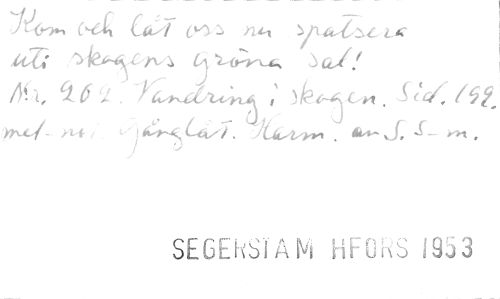 Kom och låt oss nu spatsera
uti skogens gröna sal!
Nr. 202. Vandring i skogen. Sid. 199.
mel-not. Gånglåt. Harm. av S. S-m.
SEGERSTAM HFORS 1953